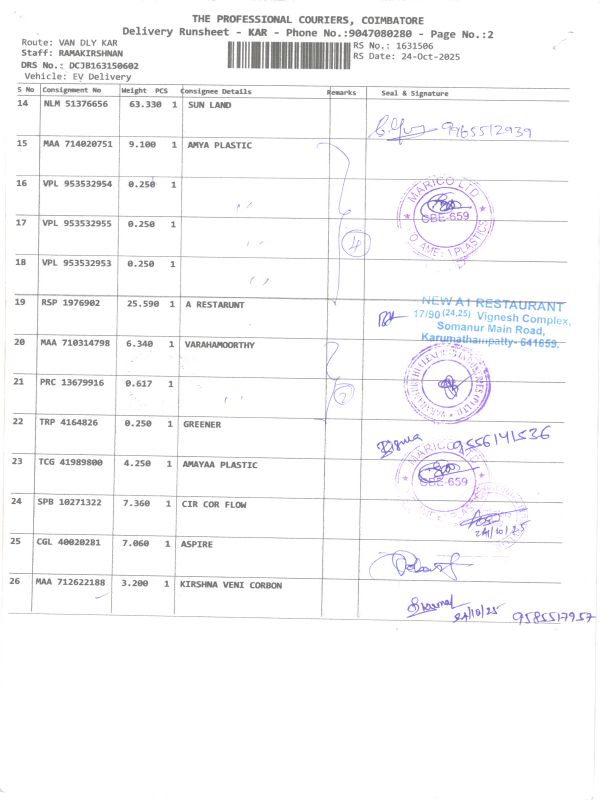 THE PROFESSIONAL COURIERS, COIMBATORE
Delivery Runsheet - KAR - Phone No.:9047080280 - Page No.:2
Route: VAN DLY KAR
Staff: RAMAKIRSHNAN
DRS No.: DCJB163150602
Vehicle: EV Delivery
RS No.: 1631506
RS Date: 24-Oct-2025
S No Consignment No Weight PCS Consignee Details Remarks Seal & Signature
14 NLM 51376656 63.330 1 SUN LAND
9965512939
15 MAA 714020751 9.100 1 AMYA PLASTIC
16 VPL 953532954 0.250 1 " "
MARICO LTD
GBE-659
17 VPL 953532955 0.250 1 " "
4
18 VPL 953532953 0.250 1 " "
19 RSP 1976902 25.590 1 A RESTARUNT
NEW A1 RESTAURANT
17/90 (24,25) Vignesh Complex,
Somanur Main Road,
Karumathampatty- 641659.
20 MAA 710314798 6.340 1 VARAHAMOORTHY
21 PRC 13679916 0.617 1 " "
2
22 TRP 4164826 0.250 1 GREENER
9556141536
23 TCG 41989800 4.250 1 AMAYAA PLASTIC
MARICO
GBE-659
24 SPB 10271322 7.360 1 CIR COR FLOW
24/10/25
25 CGL 40020281 7.060 1 ASPIRE
26 MAA 712622188 3.200 1 KIRSHNA VENI CORBON
24/10/25 9585517957